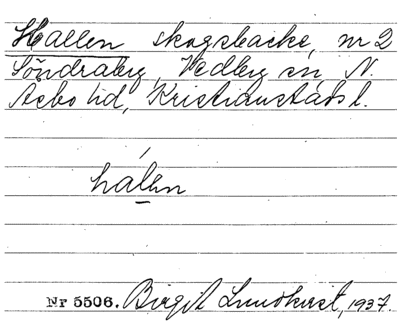 Hallen skogsbacke, nr 2
Söndraberg, Vedby sn, N.
Åsbo hd, Kristianstads l.
hálen
Nr 5506. Birgit Lundkvist, 1937.